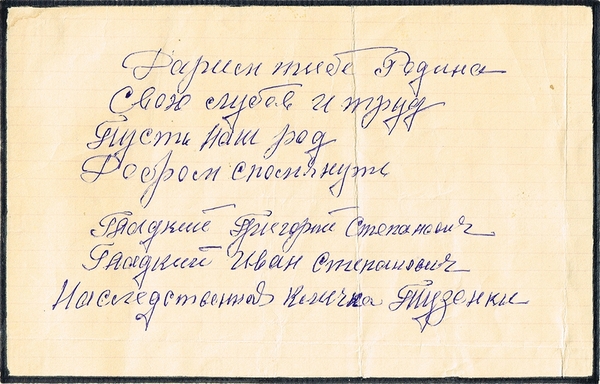 Дарим тибе Родина
Свою лубов и труд
Пусть наш род
Добром спомянуть
Гладкий Григорий Степанович
Гладкий Иван Степанович
Наследственная Тузенки